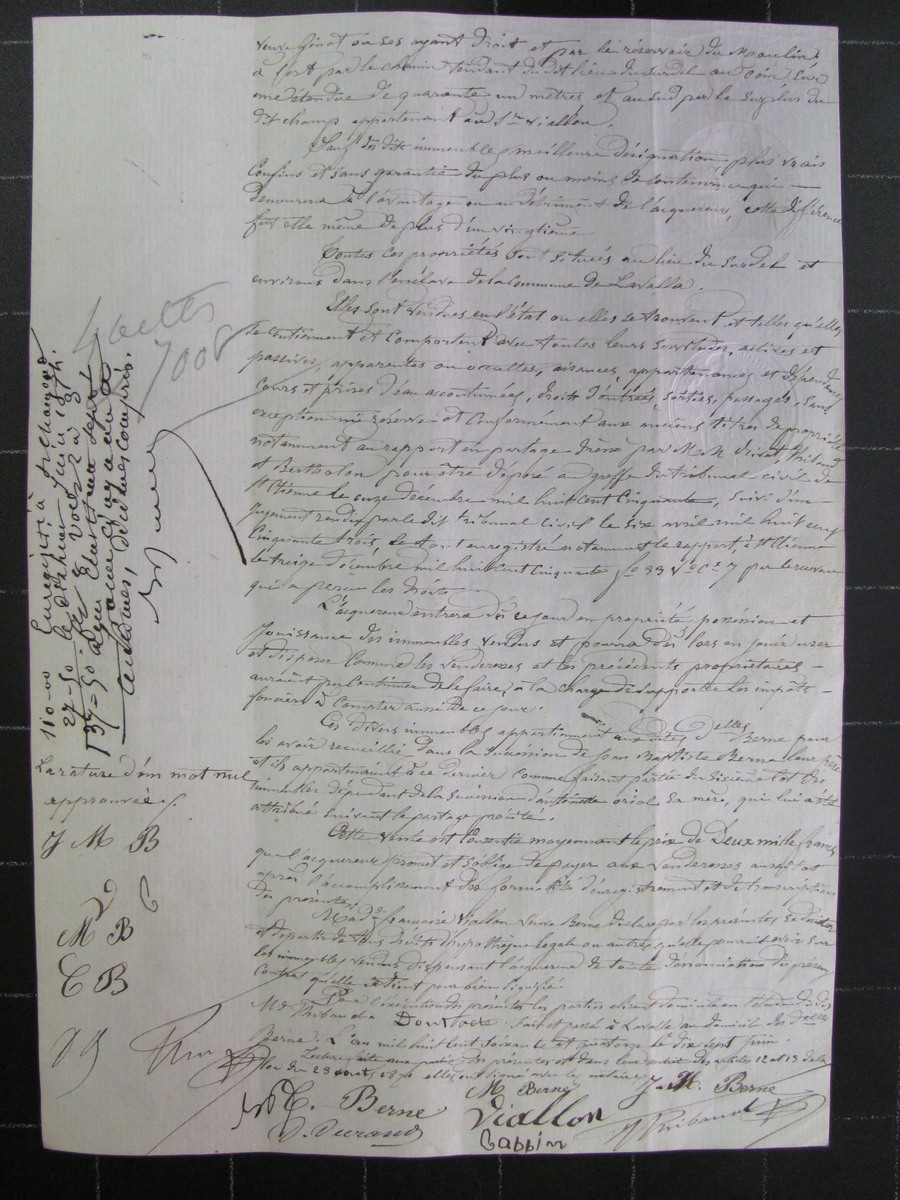 veuve Ginot ou ses ayant droit et par le réservoir du Moulin,
à l'ort par le chemin tendant du dit lieu du Surdel au Coin sur
une étendue de quarante un mètres et au sud par le surplus du
dit champ appartenant au Sr Viallon.
Sauf des dits immeubles meilleure désignation plus vrais
Confins et sans garantie du plus ou moins de contenance qui
demeurera à l'avantage ou au détriment de l'acquéreur, cette différence
fut elle même de plus d'un vingtième
Toutes les propriétés sont situées au lieu du Surdel et
environs dans l'enclave de la Commune de Lavalla.
Elles sont vendues en l'état ou elles se trouvent et telles qu'elles
se contiennent et Comportent avec toutes leurs servitudes, actives et
passives, apparentes ou occultes, aisances, appartenances et dépendances
Cours et prises d'eau accoutumées, droits d'entrées, sorties, passages, sans
exception ni réserve et Conformément aux anciens titres de propriété
notamment au rapport en partage dressé par M.M. Thibaud
et Bertholon pour être déposé au greffe du tribunal civil de
St Etienne le onze décembre mil huit cent Cinquante, suivi d'un
Jugement rendu par le dit tribunal civil le six avril mil huit cent
Cinquante trois le tout enregistré notamment le rapport, à St Etienne
le treize décembre mil huit cent cinquante fo 33 Vo Ce 7 par le receveur
qui a perçu les droits.
L'acquéreur entrera dès ce jour en propriété possession et
Jouissance des immeubles vendus et pourra dès lors en jouir user
et disposer Comme les venderesses et les précédents propriétaires
auraient pu Continuer de le faire, à la charge de supporter les impôts
fonciers à Compter aussi de ce jour.
Ces divers immeubles appartiennent aux dites Delles Berne pour
les avoir recueillis dans la succession de Jean Baptiste Berne leur père
et ils appartenaient à ce dernier comme faisant partie du lot des
immeubles dépendant de la succession d'antoinette oriol sa mère, qui lui a été
attribué suivant le partage précité.
Cette vente est Consentie moyennant le prix de Deux mille francs
que l'acquéreur promet et s'oblige de payer aux venderesses aussitôt
après l'accomplissement des formalités d'enregistrement et de transcription
des présentes.
Made françoise Viallon veuve Berne déclare par les présentes se désister
et départir de tous droits d'hypothèque légale ou autres qu'elle pourrait avoir sur
les immeubles vendus dispensant l'acquéreur de toute dénonciation du présent
Contrat qu'elle se tient pour bien signifié.
Pour l'exécution des présentes les parties élisent domicile en l'étude du dit
Me Thibaud. Dont acte fait et passé à Lavalla au domicile des Delles
Berne. L'an mil huit cent soixante et quatorze le dix sept juin.
Lecture faite aux parties des présentes et dans leur entier des articles 12 et 13 de la
Loi du 23 août 1871 elles ont signé avec le notaire
M Berne J. M. Berne
C. Berne Viallon
J. Durand Thibaud
7008
Enregistré à St Chamond
le dix huit Juin 1874
110-00
27-50
137-50
décimes compris.
La rature d'un mot nul
approuvée.
J M B
M B
C B